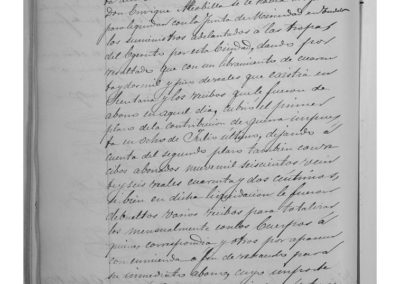 Don Enrique
para liquidar con la Junta de
los suministros adelantados á las tropas
del Ejercito por esta Ciudad, dando por
resultado que con un libramiento de cuaren
ta y dos mil y pico de reales que existia en
y los recibos que le fueron de
abono en aquel dia, cubrió el primer
plazo de la contribucion de guerra impues
ta en ocho de Julio último, dejando á
cuenta del segundo plazo tambien con re
cibos abonados nueve mil seiscientos vein
ty seis reales cuarenta y dos centimos,
si bien en dicha liquidacion le fueron
debueltos varios recibos para totalizar
los mensualmente con los Cuerpos á
quienes correspondia y otros por aparecer
con enmienda á fin de
su inmediato abono, cuyo importe